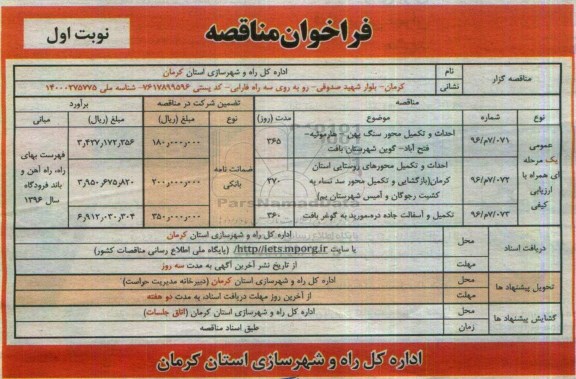 فراخوان مناقصه
نوبت اول
مناقصه گزار
نام
اداره کل راه و شهرسازی استان کرمان
نشانی
کرمان- بلوار شهید صدوقی- رو به روی سه راه فارابی- کد پستی ۷۶۱۷۸۹۹۵۹۶- شناسه ملی ۱۴۰۰۰۲۷۵۷۷۵
مناقصه
تضمین شرکت در مناقصه
برآورد
نوع
شماره
موضوع
مدت (روز)
نوع
مبلغ (ریال)
مبلغ (ریال)
مبانی
عمومی یک مرحله ای همراه با ارزیابی کیفی
۹۶/م/۷/۰۷۱
احداث و تکمیل محور سنگ پهن- هلرموئیه-
فتح آباد- گوین شهرستان بافت
۳۶۵
ضمانت نامه بانکی
۱۸۰,۰۰۰,۰۰۰
۳,۴۲۷,۱۷۲,۲۵۶
فهرست بهای راه، راه آهن و باند فرودگاه سال ۱۳۹۶
۹۶/م/۷/۰۷۲
احداث و تکمیل محورهای روستایی استان
کرمان(بازگشایی و تکمیل محور سد نساء به
کشیت رجوگان و آمیس شهرستان بم)
۲۷۰
۲۰۰,۰۰۰,۰۰۰
۳,۹۵۰,۶۷۵,۸۲۰
۹۶/م/۷/۰۷۳
تکمیل و آسفالت جاده دره‌مورید به گوغر بافت
۳۶۰
۳۵۰,۰۰۰,۰۰۰
۶,۹۱۲,۰۳۰,۳۰۴
ParsNamadData
دریافت اسناد
محل
اداره کل راه و شهرسازی استان کرمان
یا سایت http://iets.mporg.ir/ (پایگاه ملی اطلاع رسانی مناقصات کشور)
مهلت
از تاریخ نشر آخرین آگهی به مدت سه روز
تحویل پیشنهاد ها
محل
اداره کل راه و شهرسازی استان کرمان (دبیرخانه مدیریت حراست)
مهلت
از آخرین روز مهلت دریافت اسناد، به مدت دو هفته
گشایش پیشنهاد ها
محل
اداره کل راه و شهرسازی استان کرمان (اتاق جلسات)
زمان
طبق اسناد مناقصه
اداره کل راه و شهرسازی استان کرمان